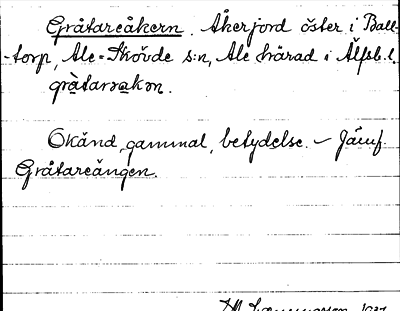 Gråtareåkern. Åkerjord öster i Ball-
torp, Ale-Skövde s:n, Ale härad i Älfsb. l.
gràtarɔakɷn.
Okänd, gammal, betydelse. – Jämf.
Gråtareängen.